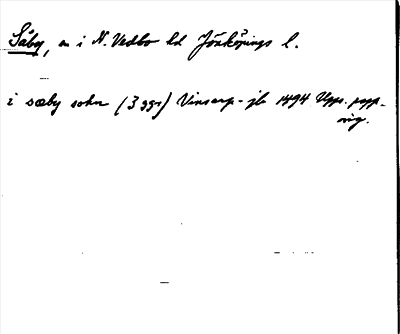 Säby, sn i N. Vedbo hd Jönköpings l.
i sæby sokn (3 ggr) Vinsarp-jb 1494 Upps. papp-
orig.